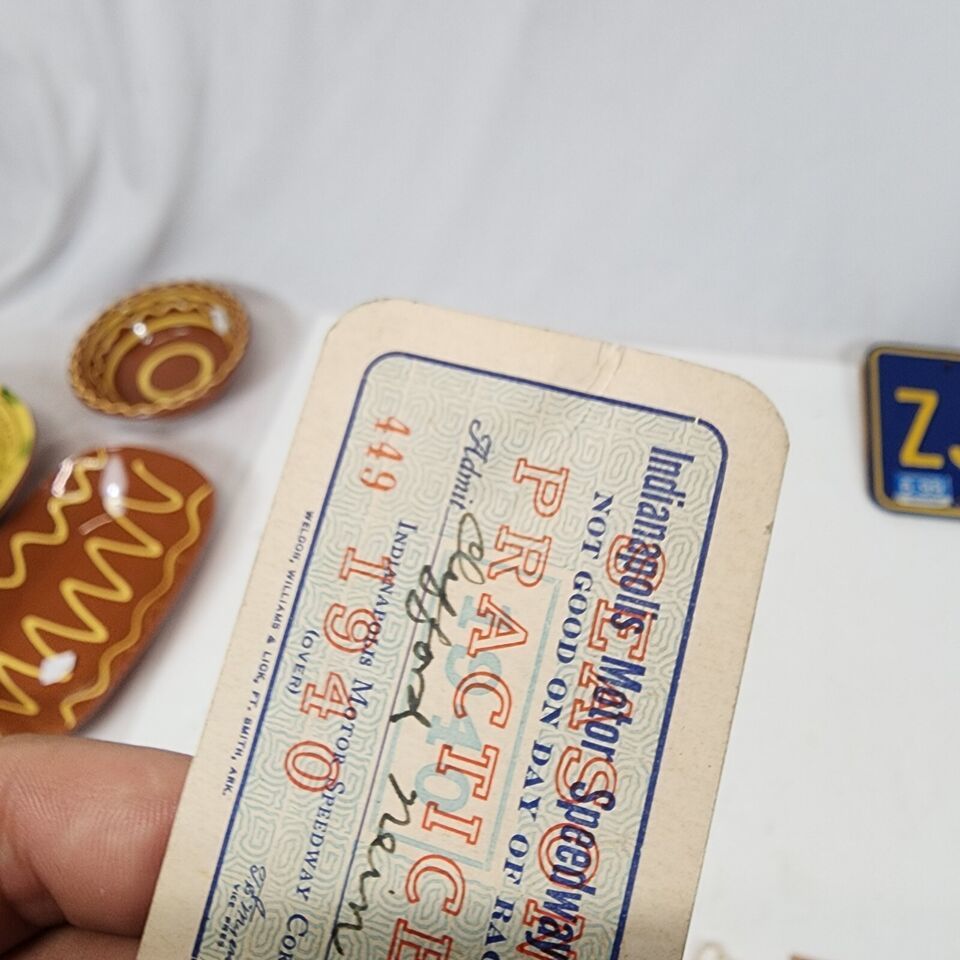 Indianapolis Motor Speedway
SEASON
NOT GOOD ON DAY OF RAC
PRACTICE
1940
Admit Clifford
449
INDIANAPOLIS MOTOR SPEEDWAY COR
1940
(OVER)
VICE PRES
WELDON, WILLIAMS & LICK, FT. SMITH, ARK.
ZJ